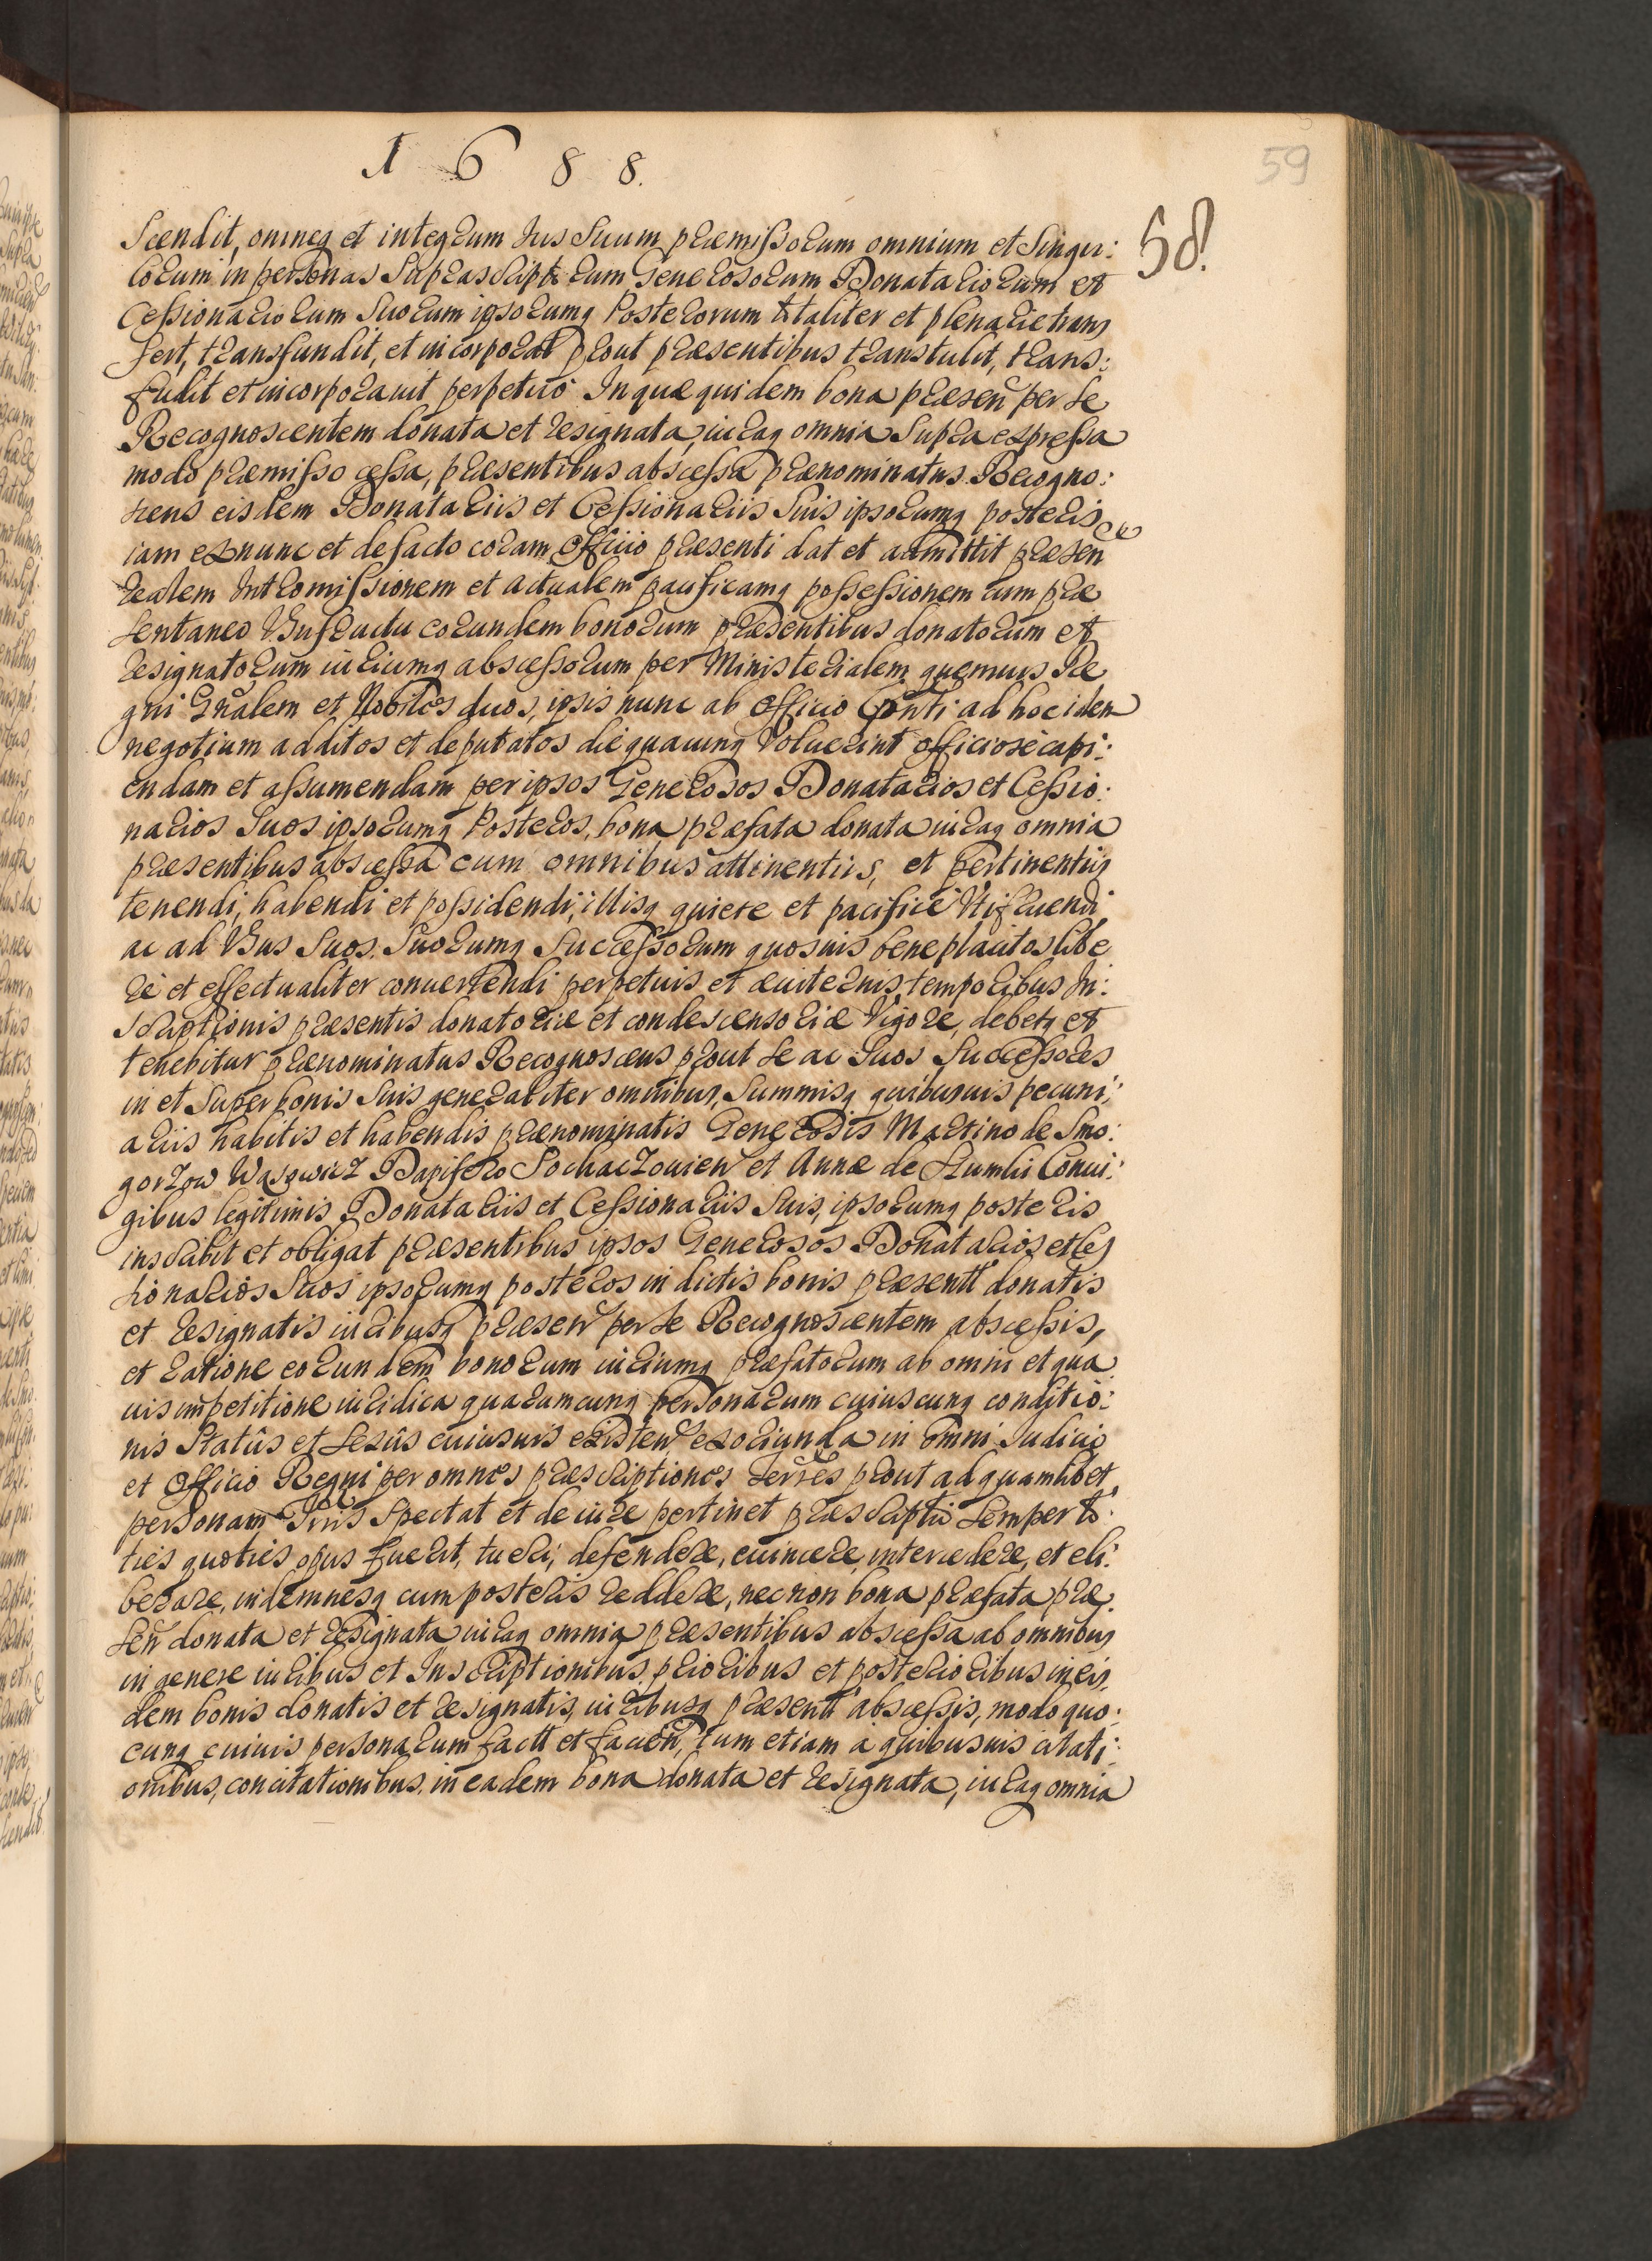 1688.
59
58.
Scendit, omneq et integrum Jus Suum præmissorum omnium et Singu:
lorum in personas Suprascriptorum Generosorum Donatariorum et
Cessionariorum Suorum ipsorumq Posterorum totaliter et plenarie trans
fert, transfundit, et incorporat prout præsentibus transtulit, trans:
fudit et incorporauit perpetuo In quæ quidem bona præsen per Se
Recognoscentem donata et resignata, iuraq omnia Supra expressa
modo præmisso cessa, præsentibus abscessa prænominatus Recogno:
scens eisdem Donatariis et Cessionariis Suis ipsorumq posteris
iam exnunc et defacto coram Officio præsenti dat et admittit præsen
realem Intromissionem et actualem pacificamq possessionem cum præ
sentaneo Vsufructu eorundem bonorum præsentibus donatorum et
resignatorum iuriumq abscessorum per Ministerialem quemuis Re
gni Gnalem et Nobiles duos, ipsis nunc ab Officio Pnti ad hoc idem
negotium additos et deputatos die quacunq Voluerint officiose capi:
endam et assumendam per ipsos Generosos Donatarios et Cessio:
narios Suos ipsorumq Posteros, bona præfata donata iuraq omnia
præsentibus abscessa cum omnibus attinentiis, et pertinentiis
tenendi, habendi et possidendi, illisq quiete et pacifice Vtifruendi
ac ad Vsus Suos Suorumq Successorum quosuis beneplacitos libe
re et effectualiter conuertendi perpetuis et æuiternis temporibus In:
scriptionis præsentis donatoriæ et condescensoriæ Vigore, debet et
tenebitur prænominatus Recognoscens prout Se ac Suos Successores
in et Super bonis Suis generaliter omnibus, Summisq quibusuis pecuni:
ariis habitis et habendis prænominatis Generosis Martino de Smo:
gorzow Wąsowicz Dapifero Sochaczouien et Annæ de Szumlii Coniu:
gibus legitimis Donatariis et Cessionariis Suis, ipsorumq posteris
inscribit et obligat præsentibus ipsos Generosos Donatarios et Ces
sionarios Suos ipsorumq posteros in dictis bonis præsentt donatis
et resignatis iuribusq præsen per Se Recognoscentem abscessis,
et ratione eorundem bonorum iuriumq præfatorum ab omni et qua
uis impetitione iuridica quarumcunq personarum cuiuscunq conditio:
nis Statûs et Sexûs cuiusuis existen exoriunda in omni Judicio
et Officio Regni per omnes præscriptiones terres prout ad quamlibet
personam Spectat et de iure pertinet præscriptio Semper to:
ties quoties opus fuerit, tueri, defendere, euincere, intercedere, et eli:
berare, indemnesq cum posteris reddere, nec non bona præfata præ
sen donata et resignata iuraq omnia præsentibus abscessa ab omnibus
in genere iuribus et Inscriptionibus prioribus et posterioribus in eis
dem bonis donatis et resignatis, iuribusq præsentt abscessis, modo quo:
cunq cuiuis personarum factt et facien, tum etiam a quibusuis citati:
onibus, concitationibus, in eadem bona donata et resignata, iuraq omnia